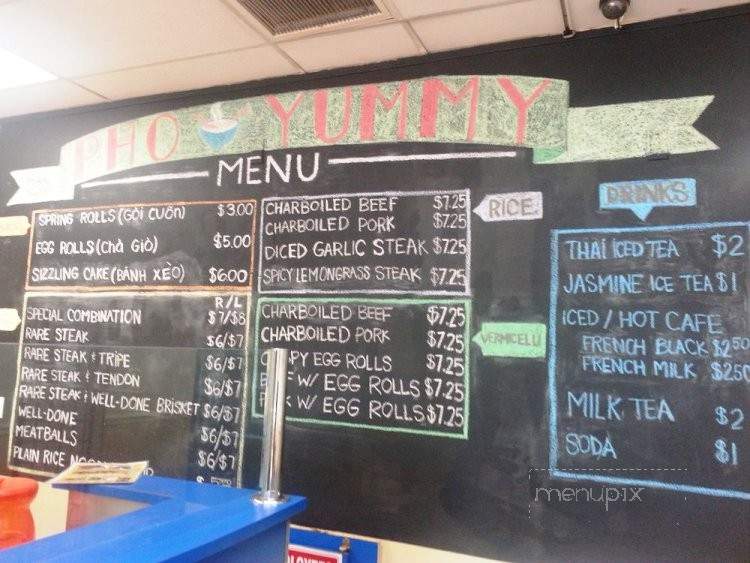 PHO YUMMY
MENU
SPRING ROLLS (GỎI CUỐN) $3.00
EGG ROLLS (CHẢ GIÒ) $5.00
SIZZLING CAKE (BÁNH XÈO) $6.00
R/L
SPECIAL COMBINATION $7/$8
RARE STEAK $6/$7
RARE STEAK & TRIPE $6/$7
RARE STEAK & TENDON $6/$7
RARE STEAK & WELL-DONE BRISKET $6/$7
WELL-DONE $6/$7
MEATBALLS $6/$7
PLAIN RICE
RICE
CHARBOILED BEEF $7.25
CHARBOILED PORK $7.25
DICED GARLIC STEAK $7.25
SPICY LEMONGRASS STEAK $7.25
VERMICELLI
CHARBOILED BEEF $7.25
CHARBOILED PORK $7.25
EGG ROLLS $7.25
W/ EGG ROLLS $7.25
W/ EGG ROLLS $7.25
DRINKS
THAI ICED TEA $2
JASMINE ICE TEA $1
ICED / HOT CAFE
FRENCH BLACK $2.50
FRENCH MILK $2.50
MILK TEA $2
SODA $1
menupix